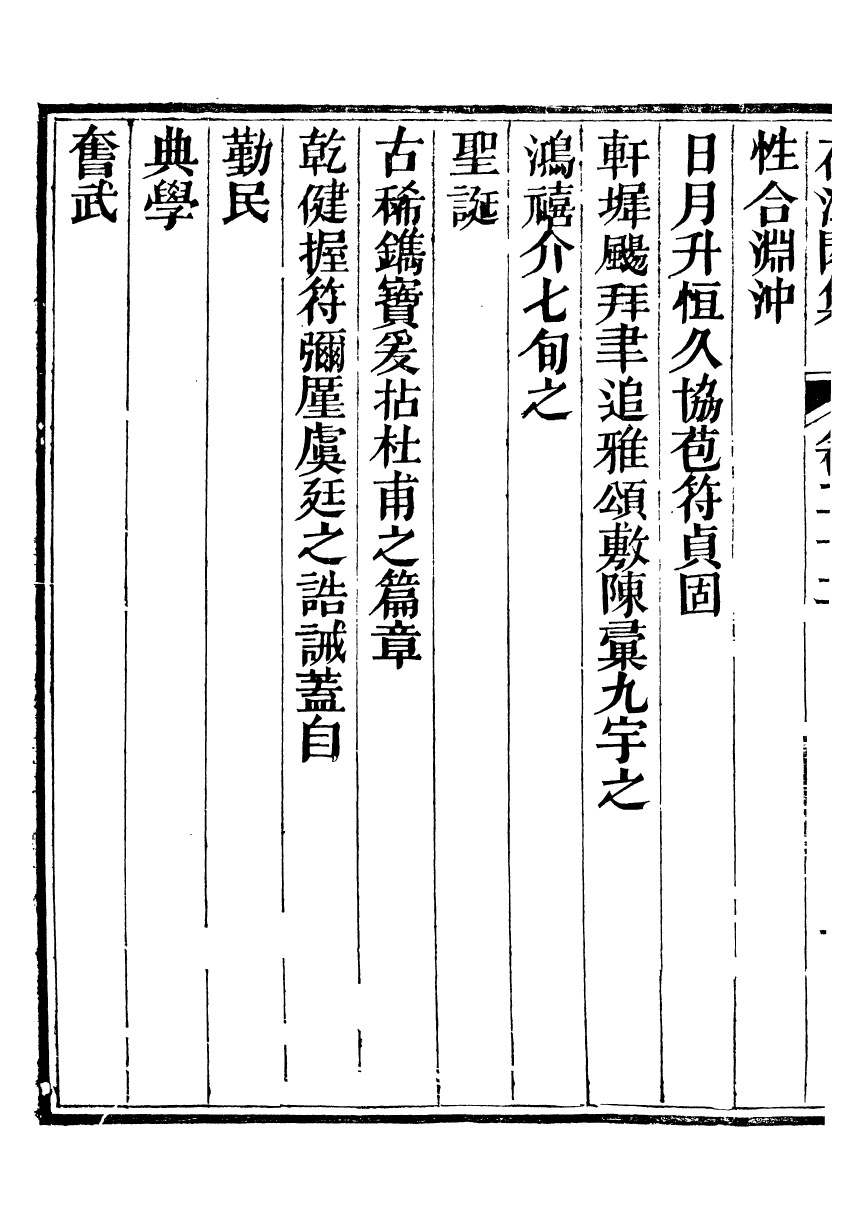 性合淵沖
日月升恒久協苞符貞固
軒墀颺拜聿追雅頌敷陳彙九宇之
鴻禧介七旬之
聖誕
古稀鐫寶爰拈杜甫之篇章
乾健握符彌廑虞廷之誥誡蓋自
勤民
典學
奮武